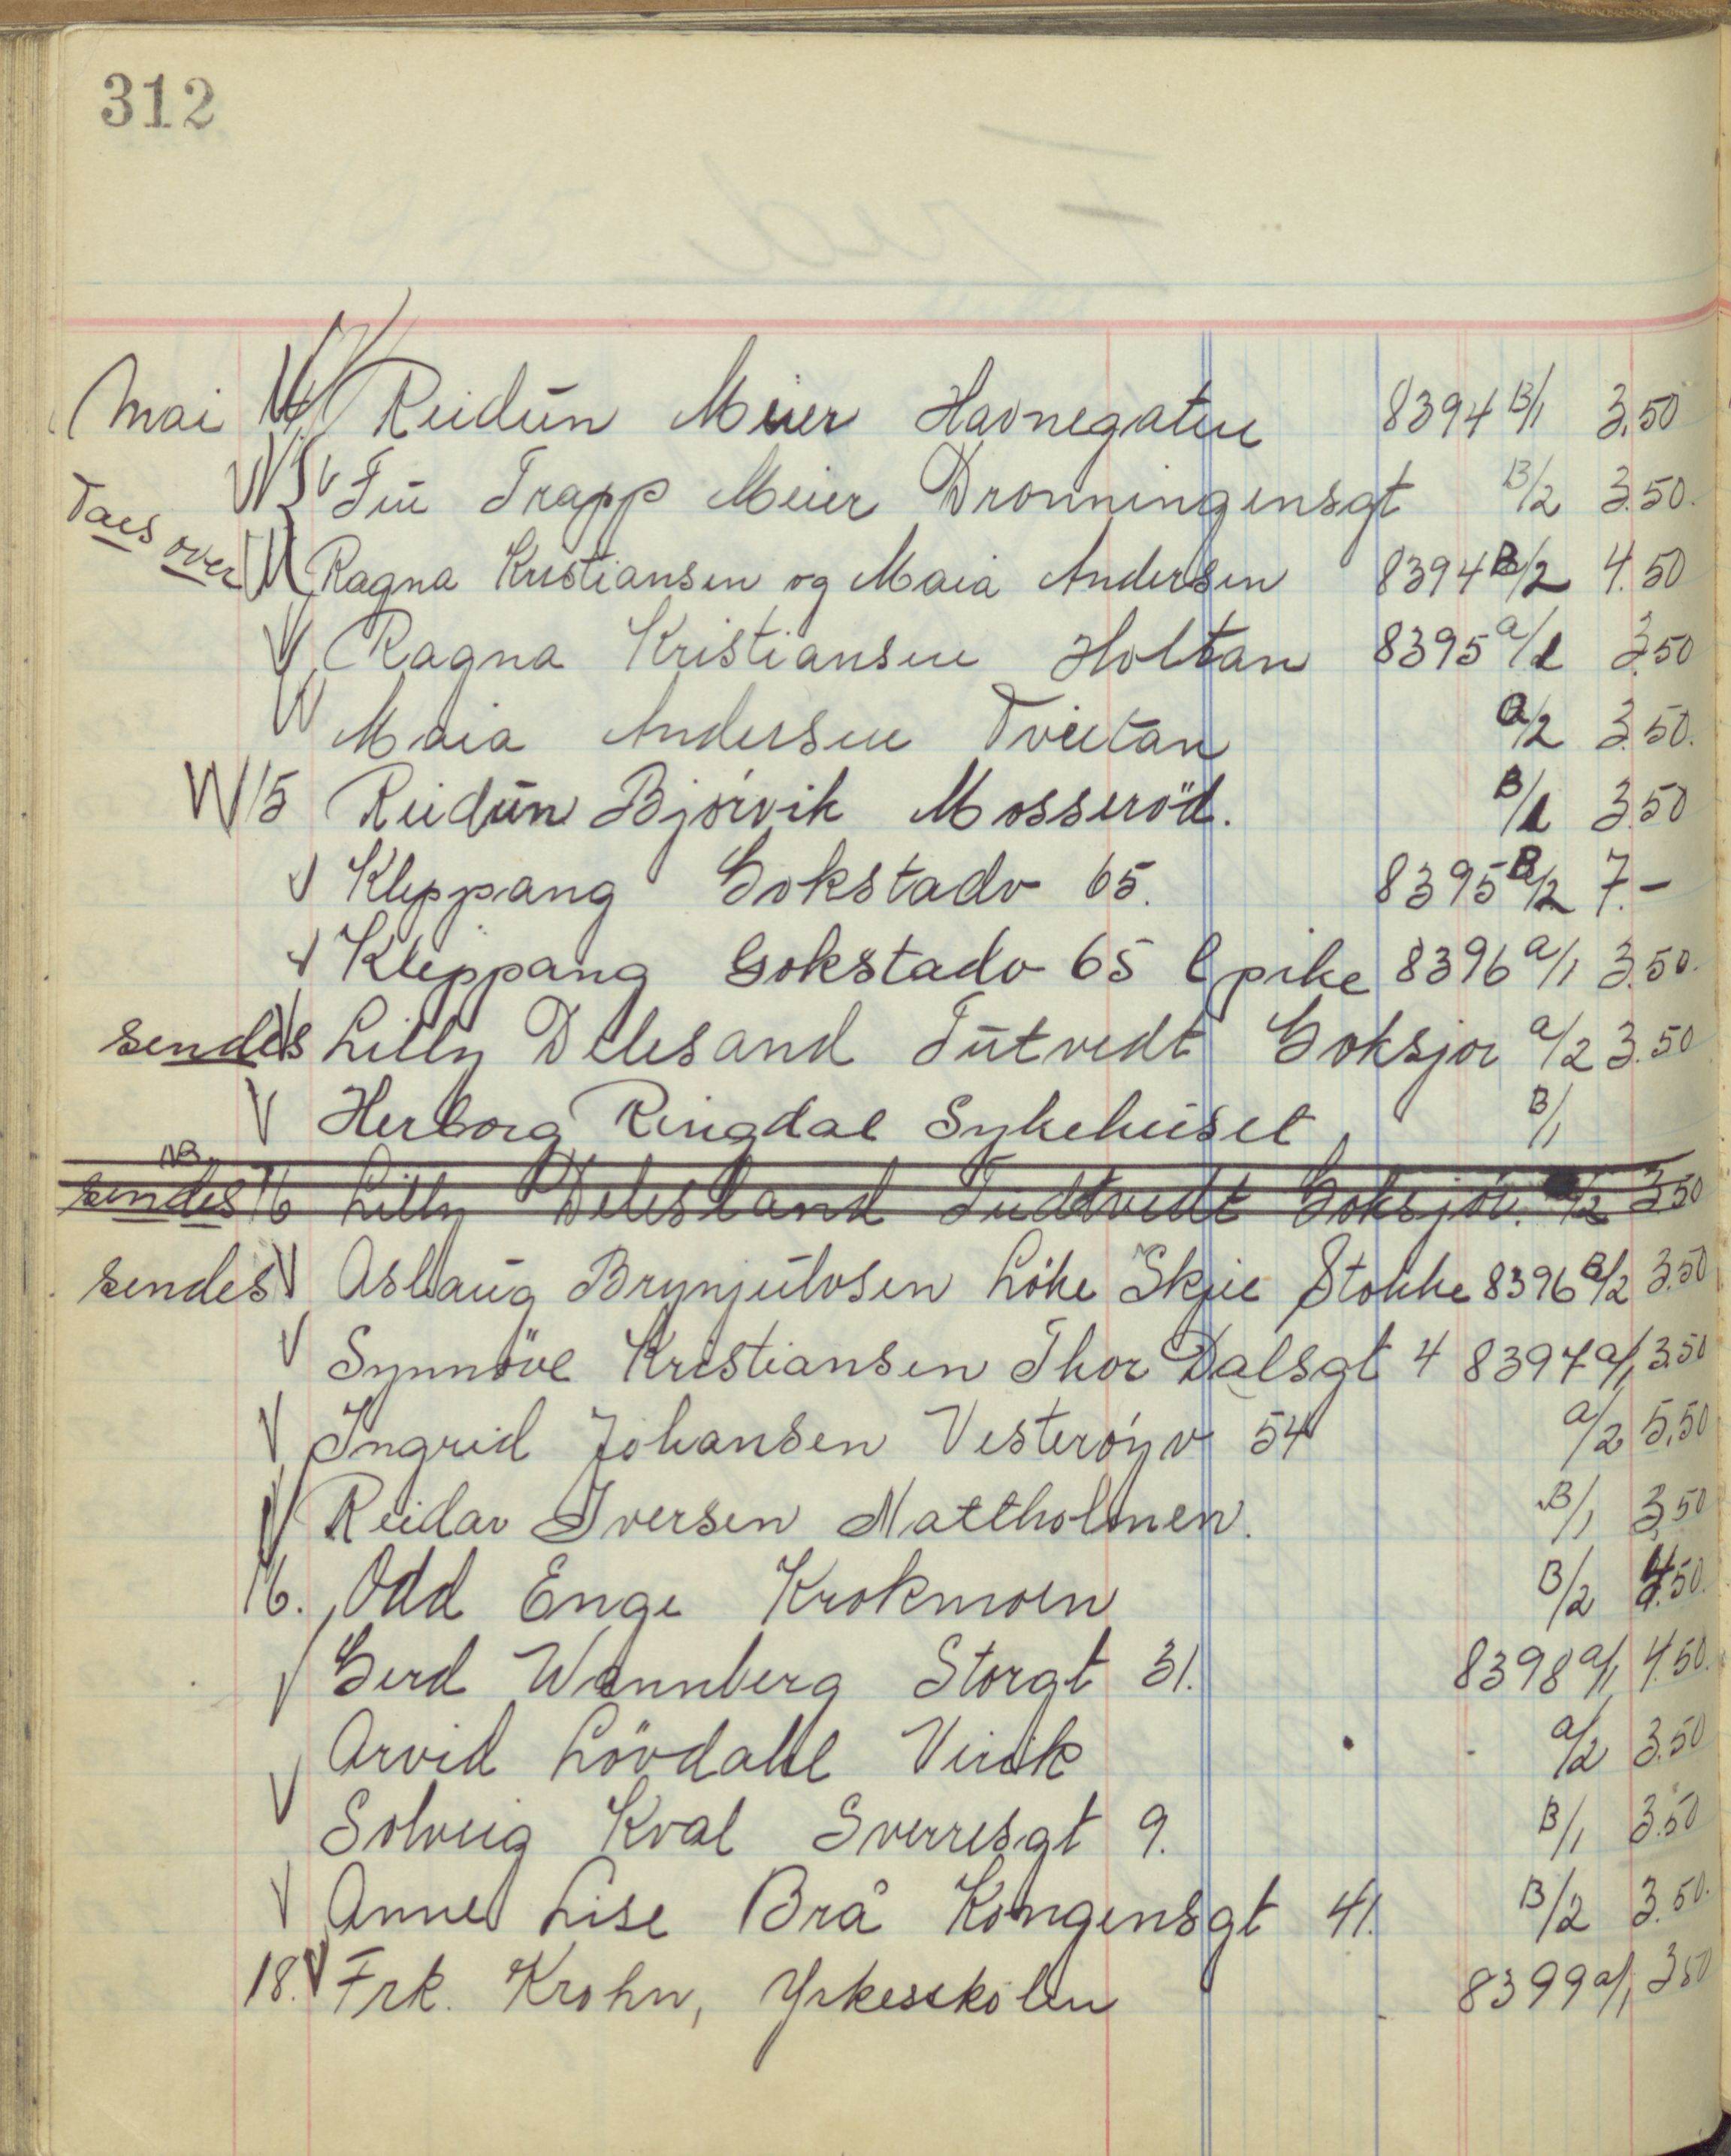 312
Mai 14 Reidun Meier Havnegaten 8394 B/1 3,50
Fru Trapp Meier Dronningensgt B/2 3.50.
Taes over Ragna Kristiansen og Maia Andersen 8394 B/2 4.50
Ragna Kristiansen Holtan 8395 a/1 3.50
Maia Andersen Tveitan a/2 3.50.
15 Reidun Bjørvik Mosserød. B/1 3.50
Kleppang Gokstadv 65. 8395 B/2 7.-
Kleppang Gokstadv 65 1 pike 8396 a/1 3.50.
sendes Lilly Delesand Tutvedt Goksjø a/2 3.50
Herborg Ringdal Sykehuset B/1
NB.
sendes 16 Lilly Delesland Tudtvedt Goksjø. /2 3.50
sendes Aslaug Brynjulvsen Löke Skjee Stokke 8396 B/2 3.50
Synnöve Kristiansen Thor Dalsgt 4 8397 a/1 3.50
Ingrid Johansen Vesterøyv 54 a/2 5,50
Reidar Iversen Nattholmen. B/1 3,50
16. Odd Enge Krokmoen B/2 4.50.
Gerd Wennberg Storgt 31. 8398 a/1 4.50.
Arvid Lövdahl Virik a/2 3.50
Solveig Kval Sverresgt 9. B/1 3.50
Anne Lise Brå Kongensgt 41. B/2 3.50.
18. Frk. Krohn, Yrkesskolen 8399 a/1 3.50